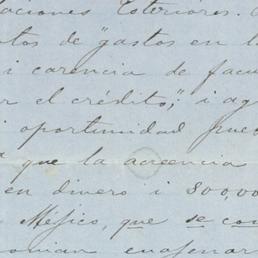 aciones Esteriores.
tos de "gastos en l
i carencia de facu
r el crédito," i ag
i oportunidad pue
que la acreencia
en divero i 800,00
Méjico, que se con
onian enagenar